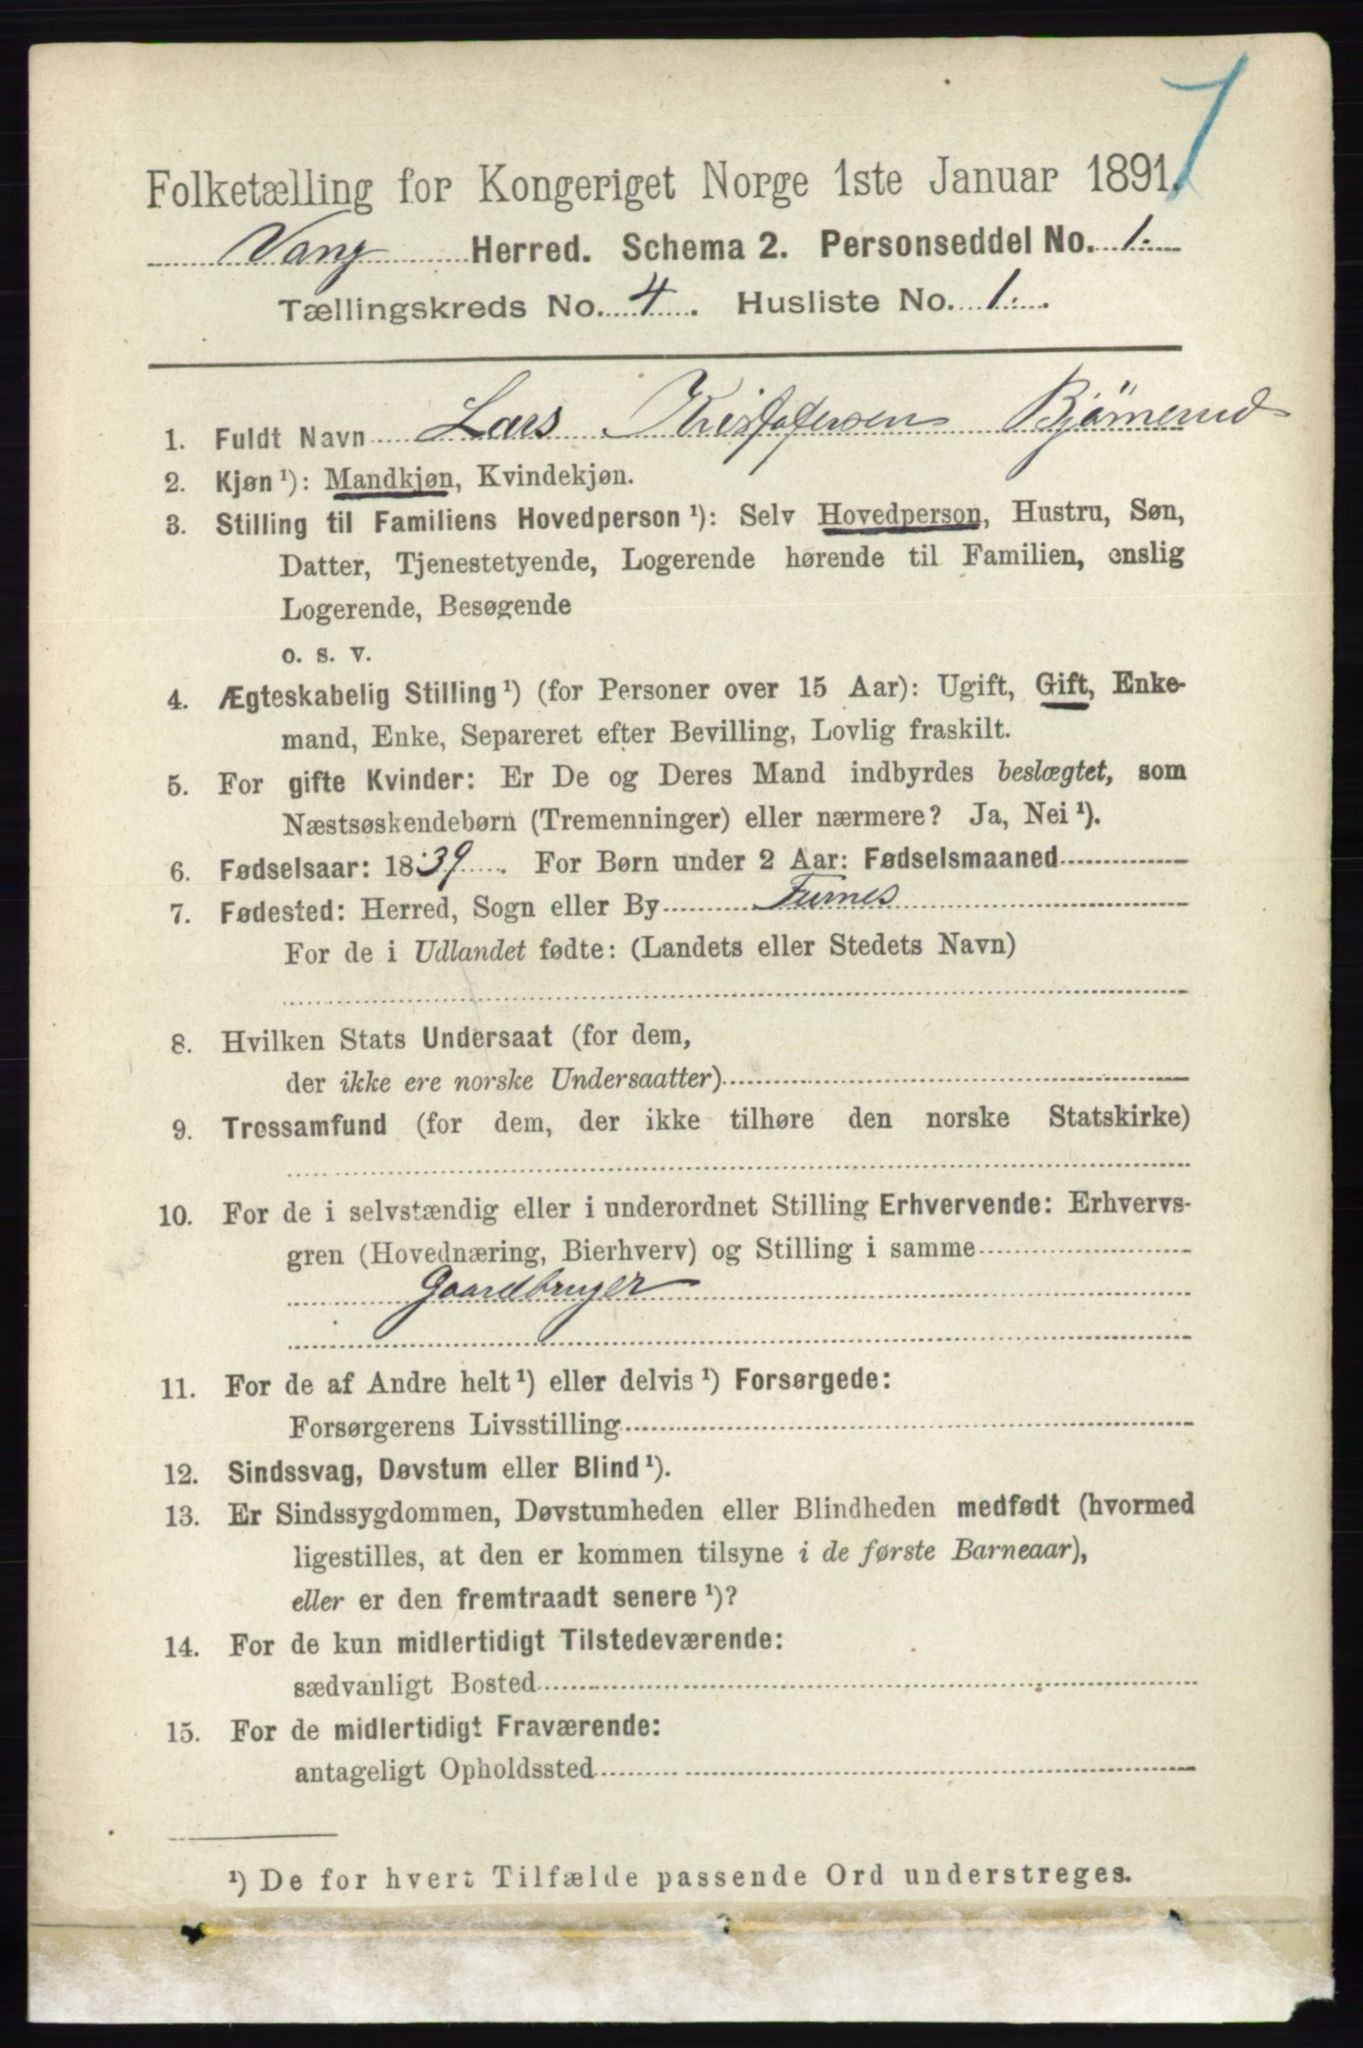 7
Folketælling for Kongeriget Norge 1ste Januar 1891.
Vang Herred. Schema 2. Personseddel No. 1.
Tællingskreds No. 4. Husliste No. 1.
1. Fuldt Navn Lars Kristofersen Bjørnerud
2. Kjøn¹): Mandkjøn, Kvindekjøn.
3. Stilling til Familiens Hovedperson¹): Selv Hovedperson, Hustru, Søn,
Datter, Tjenestetyende, Logerende hørende til Familien, enslig
Logerende, Besøgende
o. s. v.
4. Ægteskabelig Stilling¹) (for Personer over 15 Aar): Ugift, Gift, Enke-
mand, Enke, Separeret efter Bevilling, Lovlig fraskilt.
5. For gifte Kvinder: Er De og Deres Mand indbyrdes beslægtet, som
Næstsøskendebørn (Tremenninger) eller nærmere? Ja, Nei¹).
6. Fødselsaar: 1839. For Børn under 2 Aar: Fødselsmaaned
7. Fødested: Herred, Sogn eller By Furnes
For de i Udlandet fødte: (Landets eller Stedets Navn)
8. Hvilken Stats Undersaat (for dem,
der ikke ere norske Undersaatter)
9. Trossamfund (for dem, der ikke tilhøre den norske Statskirke)
10. For de i selvstændig eller i underordnet Stilling Erhvervende: Erhvervs-
gren (Hovednæring, Bierhverv) og Stilling i samme
Gaardbruger
11. For de af Andre helt¹) eller delvis¹) Forsørgede:
Forsørgerens Livsstilling
12. Sindssvag, Døvstum eller Blind¹).
13. Er Sindssygdommen, Døvstumheden eller Blindheden medfødt (hvormed
ligestilles, at den er kommen tilsyne i de første Barneaar),
eller er den fremtraadt senere¹)?
14. For de kun midlertidigt Tilstedeværende:
sædvanligt Bosted
15. For de midlertidigt Fraværende:
antageligt Opholdssted
¹) De for hvert Tilfælde passende Ord understreges.